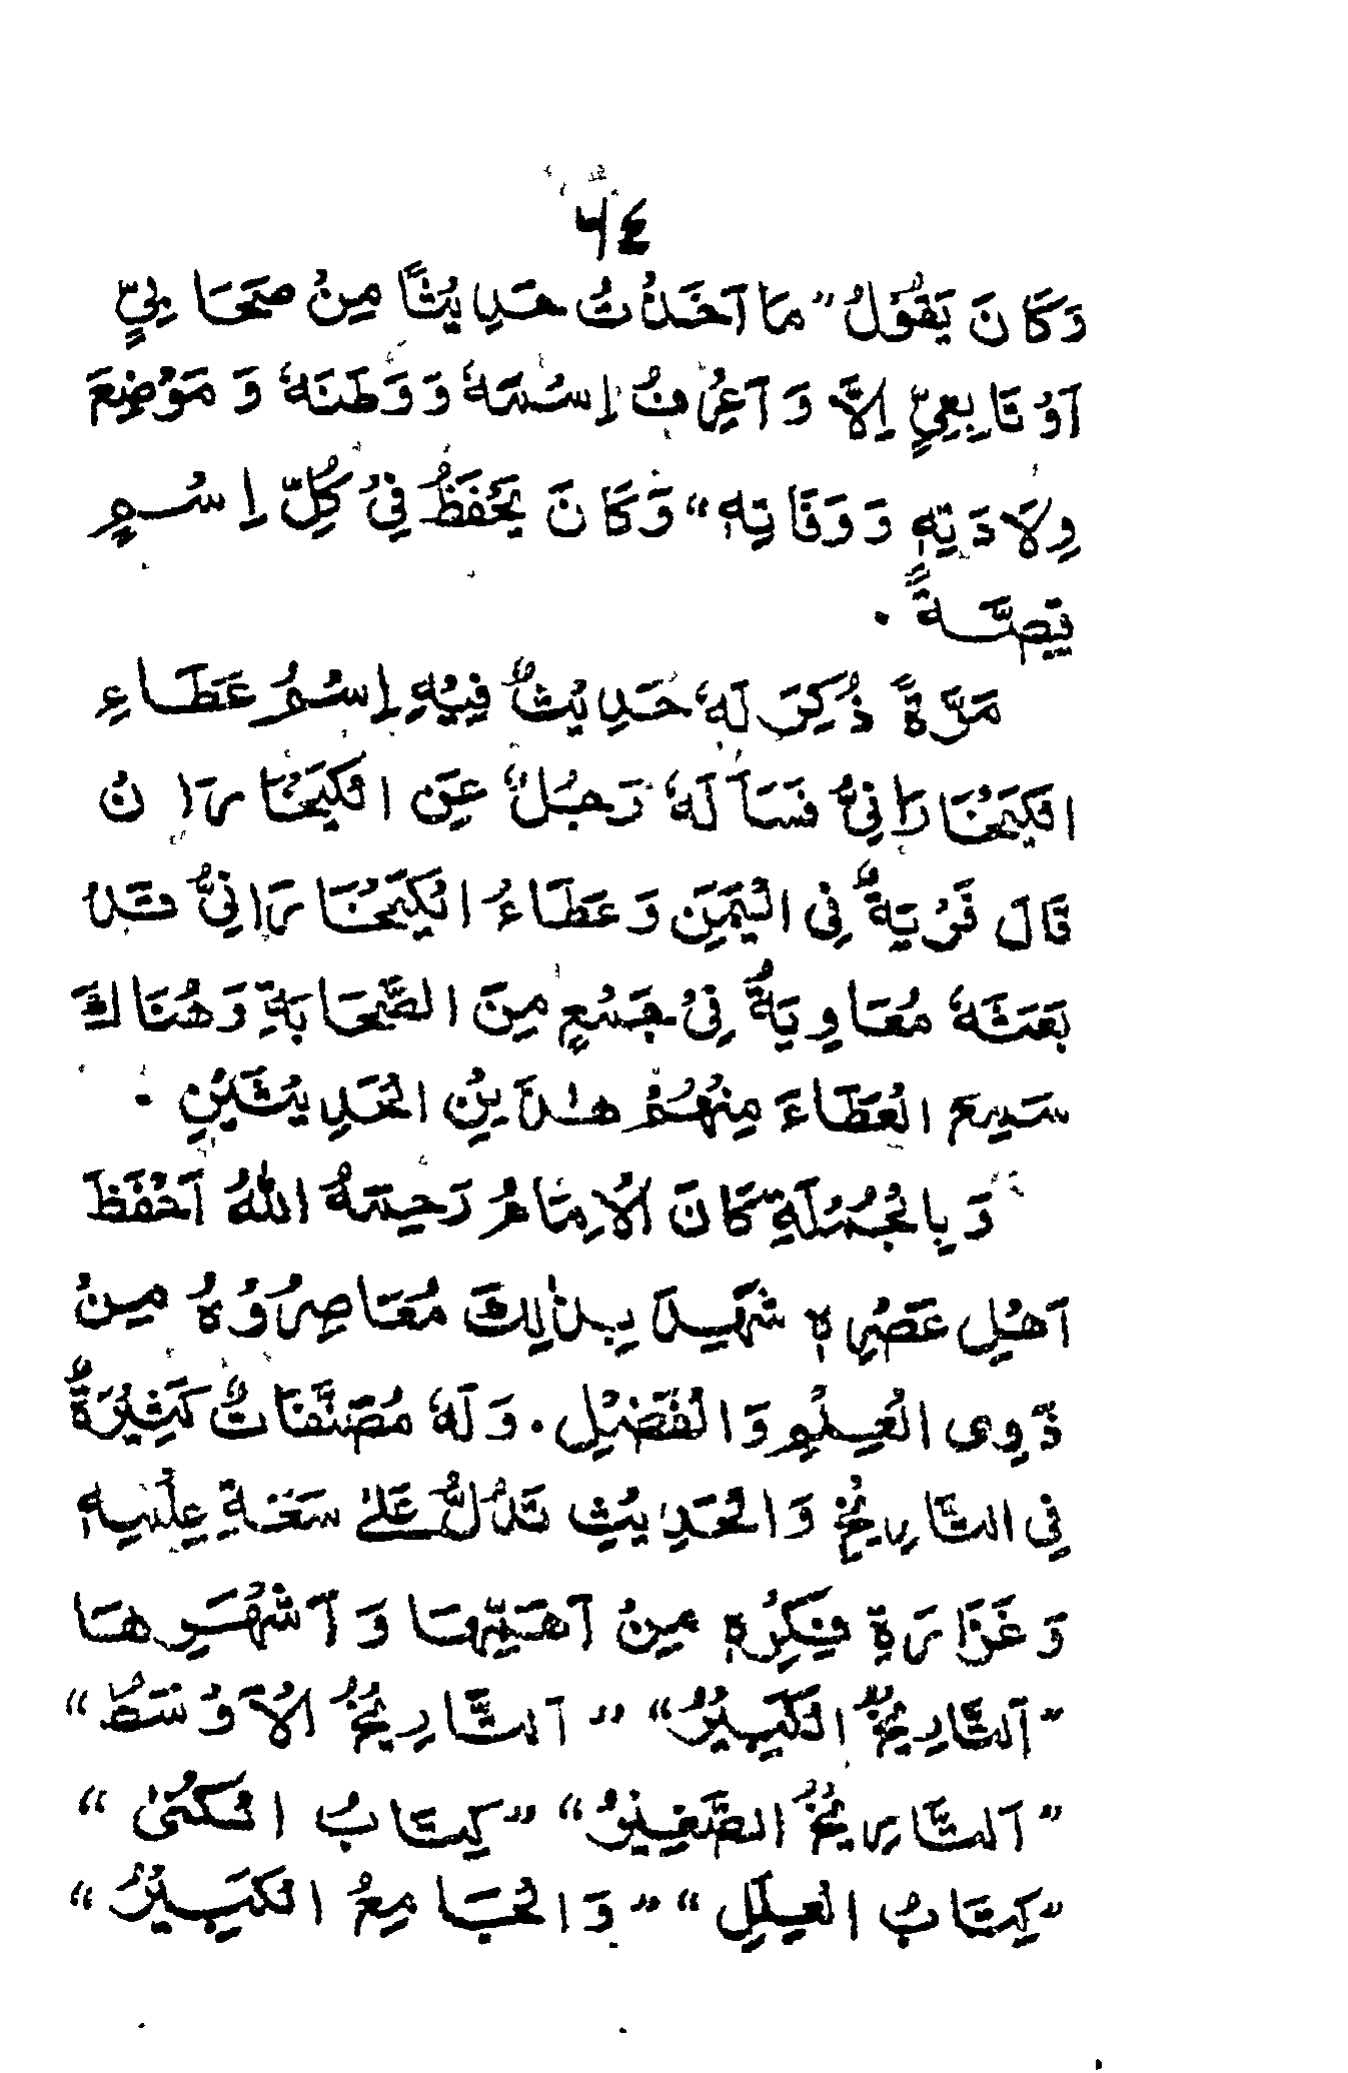 ٦٤
وَكَانَ يَقُوْلُ "مَا اَخَذْتُ حَدِيْثًا مِنْ صَحَابِيٍّ
اَوْ تَابِعِيٍّ اِلَّا وَ اَعْرِفُ اِسْمَهٗ وَ وَطَنَهٗ وَ مَوْضِعَ
وِلَادَتِهٖ وَ وَفَاتِهٖ" وَكَانَ يَحْفَظُ فِيْ كُلِّ اِسْمٍ
قِصَّةً .
مَرَّةً ذُكِرَ لَهٗ حَدِيْثٌ فِيْهِ اِسْمُ عَطَاءِ
الْكَيْخَارَانِيُّ فَسَاَلَهٗ رَجُلٌ عَنِ الْكَيْخَارَانْ
قَالَ قَرْيَةٌ فِي الْيَمَنِ وَعَطَاءُ الْكَيْخَارَانِيُّ قَدْ
بَعَثَهٗ مُعَاوِيَةُ فِيْ جَمْعٍ مِنَ الصَّحَابَةِ وَهُنَاكَ
سَمِعَ الْعَطَاءَ مِنْهُمْ هٰذَيْنِ الْحَدِيْثَيْنِ .
وَبِالْجُمْلَةِ كَانَ الْاِمَامُ رَحِمَهُ اللّٰهُ اَحْفَظَ
اَهْلِ عَصْرِهٖ شَهِدَ بِذٰلِكَ مُعَاصِرُوْهُ مِنْ
ذَوِي الْعِلْمِ وَالْفَضْلِ . وَلَهٗ مُصَنَّفَاتٌ كَثِيْرَةٌ
فِي التَّارِيْخِ وَالْحَدِيْثِ تَدُلُّ عَلٰى سَعَةِ عِلْمِهٖ
وَ غَزَارَةِ فِكْرِهٖ مِنْ اَهَمِّهَا وَ اَشْهَرِهَا
"اَلتَّارِيْخُ الْكَبِيْرُ" "اَلتَّارِيْخُ الْاَوْسَطُ"
"اَلتَّارِيْخُ الصَّغِيْرُ" "كِتَابُ الْكُنٰى"
"كِتَابُ الْعِلَلِ" "وَالْجَامِعُ الْكَبِيْرُ"